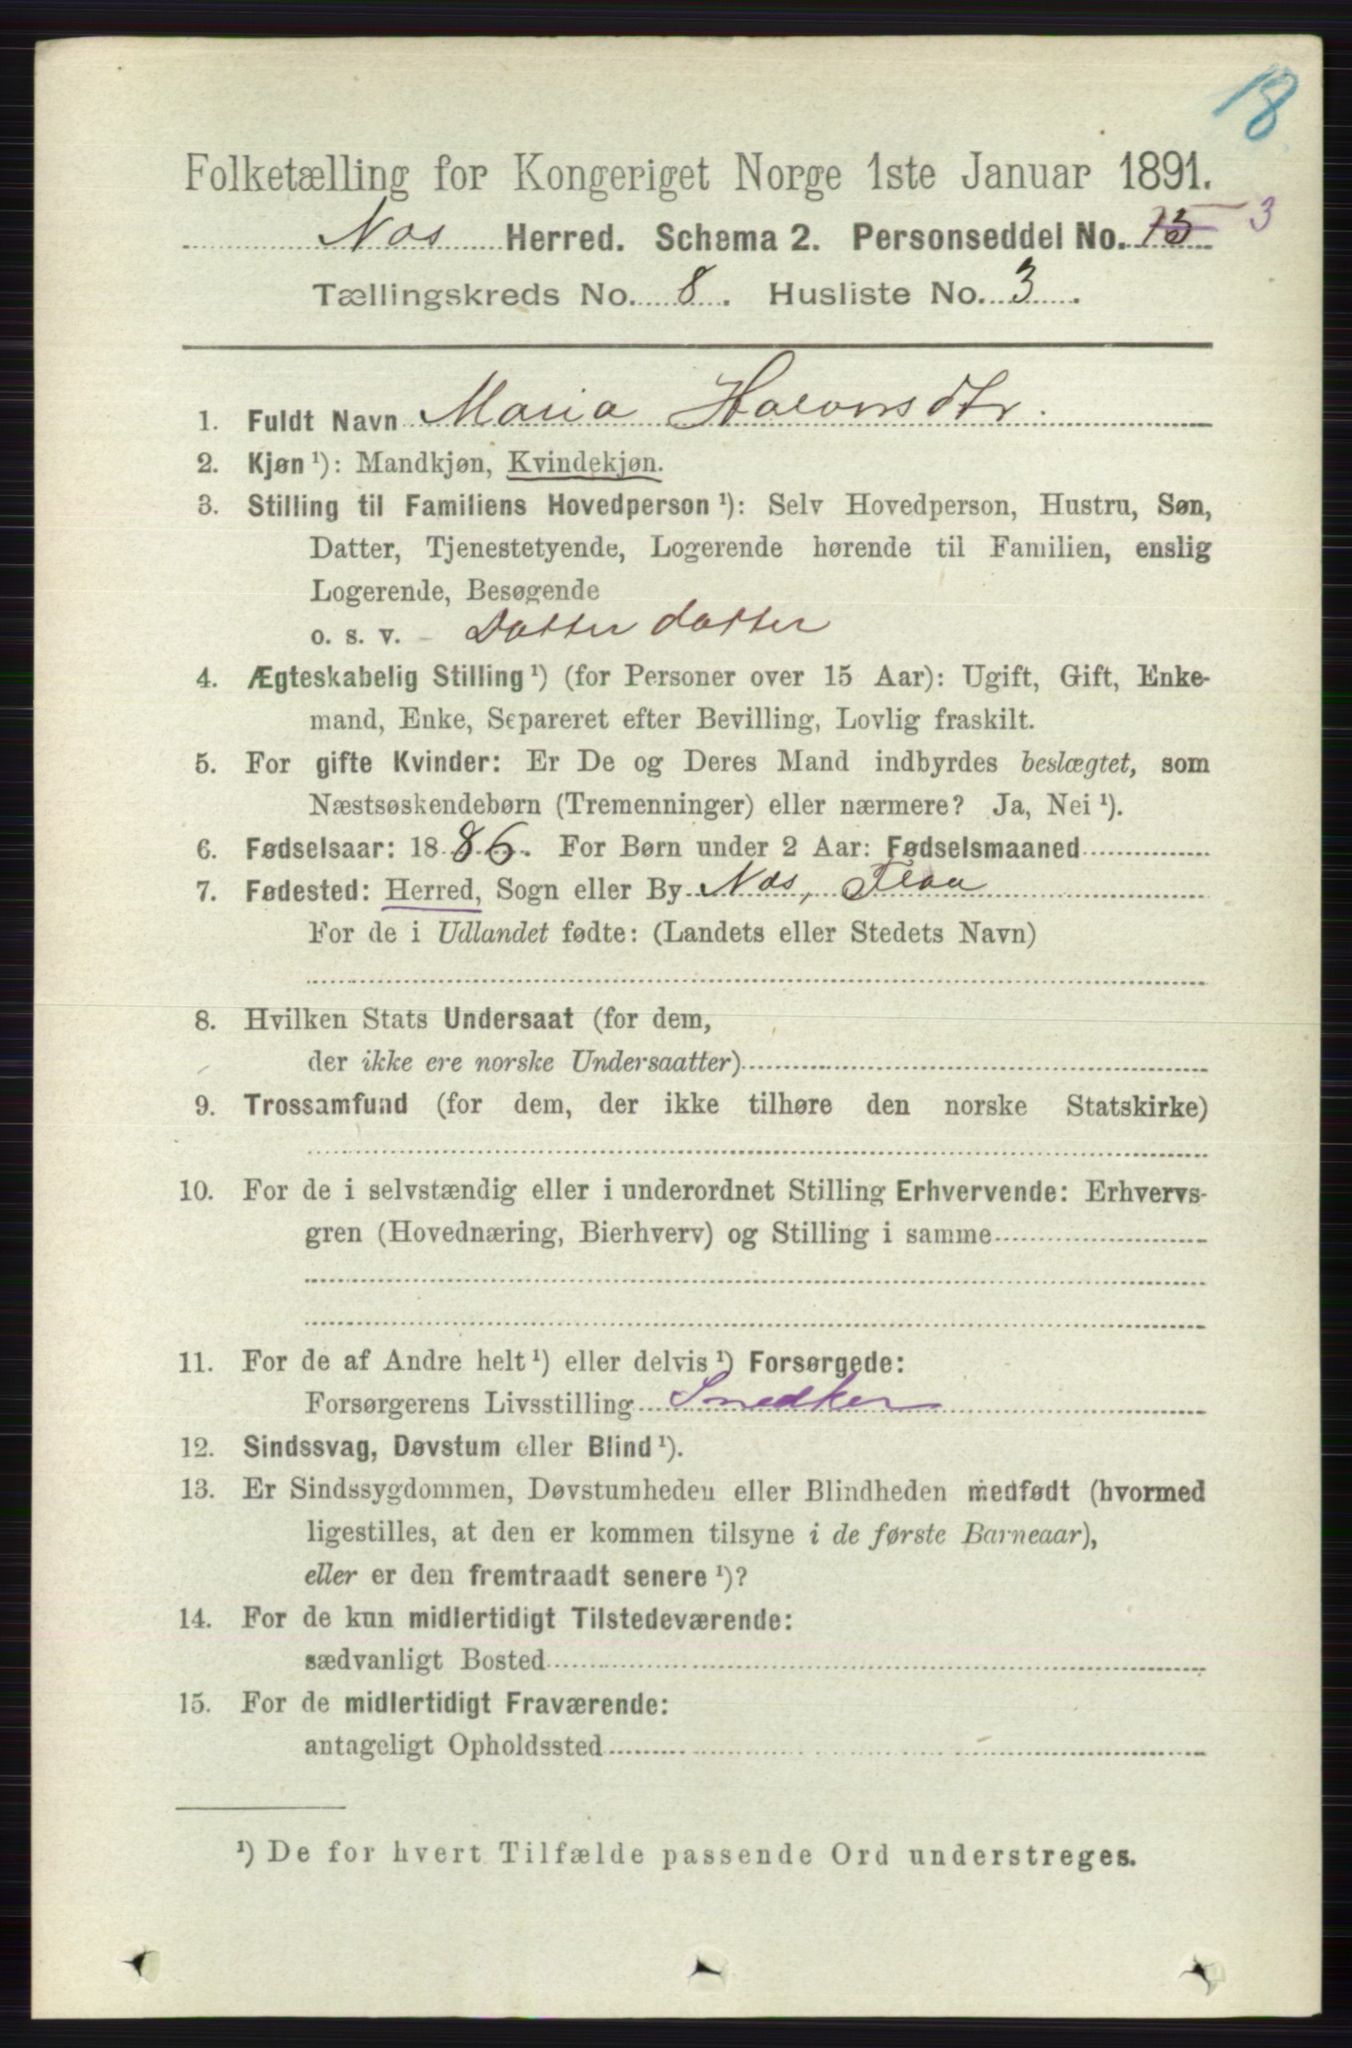 18
Folketælling for Kongeriget Norge 1ste Januar 1891.
Nes Herred. Schema 2. Personseddel No. 15 3
Tællingskreds No. 8. Husliste No. 3.
1. Fuldt Navn Maria Halvorsdtr.
2. Kjøn ¹): Mandkjøn, Kvindekjøn.
3. Stilling til Familiens Hovedperson ¹): Selv Hovedperson, Hustru, Søn,
Datter, Tjenestetyende, Logerende hørende til Familien, enslig
Logerende, Besøgende
o. s. v. - Datter datter
4. Ægteskabelig Stilling ¹) (for Personer over 15 Aar): Ugift, Gift, Enke-
mand, Enke, Separeret efter Bevilling, Lovlig fraskilt.
5. For gifte Kvinder: Er De og Deres Mand indbyrdes beslægtet, som
Næstsøskendebørn (Tremenninger) eller nærmere? Ja, Nei ¹).
6. Fødselsaar: 1886. For Børn under 2 Aar: Fødselsmaaned
7. Fødested: Herred, Sogn eller By Nes, Flaa
For de i Udlandet fødte: (Landets eller Stedets Navn)
8. Hvilken Stats Undersaat (for dem,
der ikke ere norske Undersaatter)
9. Trossamfund (for dem, der ikke tilhøre den norske Statskirke)
10. For de i selvstændig eller i underordnet Stilling Erhvervende: Erhvervs-
gren (Hovednæring, Bierhverv) og Stilling i samme
11. For de af Andre helt ¹) eller delvis ¹) Forsørgede:
Forsørgerens Livsstilling Snedker
12. Sindssvag, Døvstum eller Blind ¹).
13. Er Sindssygdommen, Døvstumheden eller Blindheden medfødt (hvormed
ligestilles, at den er kommen tilsyne i de første Barneaar),
eller er den fremtraadt senere ¹)?
14. For de kun midlertidigt Tilstedeværende:
sædvanligt Bosted
15. For de midlertidigt Fraværende:
antageligt Opholdssted
¹) De for hvert Tilfælde passende Ord understreges.